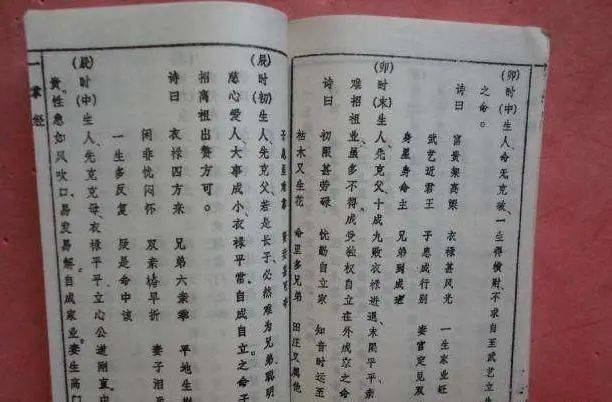 (卯)时(中)生人、命无克破、一生得横财、不求自至武艺立生
之命。
诗曰
富贵架高厥　衣禄甚风光　一生家业旺
武艺近君王　子息成行别　妻宫定见双
身星身命主　兄弟到成
(卯)时(末)生人、先克父十成九败衣禄进退、末限平平、亲
难招祖业、虽多不得、成受独权自立在外成家之命
诗曰
初限甚劳碌　忧勤自立家　知音时运至
枯木又生花　命里多兄弟　田庄又属他
子息
(辰)时(初)生人、先克父、若是长子必然难为兄弟聪明
慈心爱人、大事成小、衣禄平常、自成自立之命子
招离祖出赘方可。
诗曰
衣禄四方来　兄弟六亲乖　平地生
闲非忧闷怀　双亲格早折　妻子相
一生多反复　疑是命中该
(辰)时(中)生人、先克母、衣禄平平、立心公道刚直、中
贵。性急如风吹口、易发易解、自成家业。妻生高门
一掌经